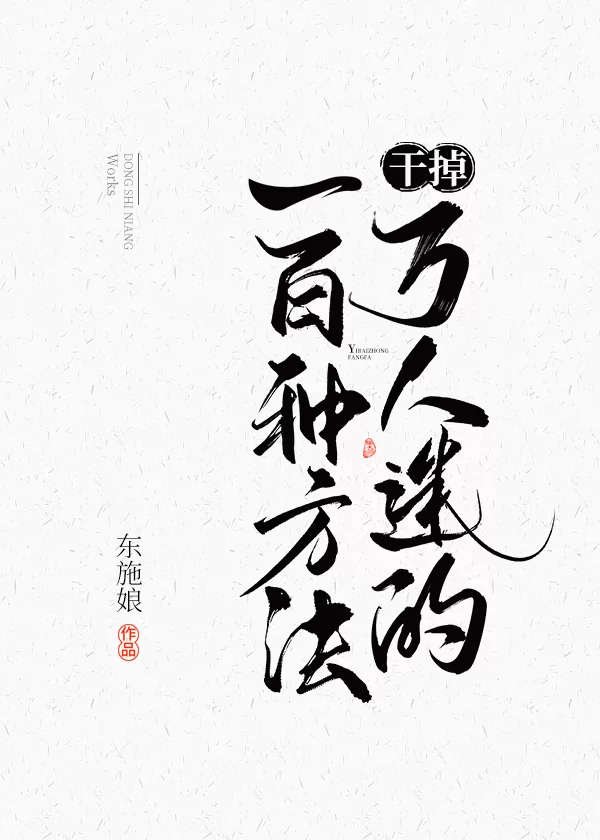 干掉
万人迷的
一百种方法
YIBAIZHONG
FANGFA
DONG SHI NIANG
Works
东施娘
作品